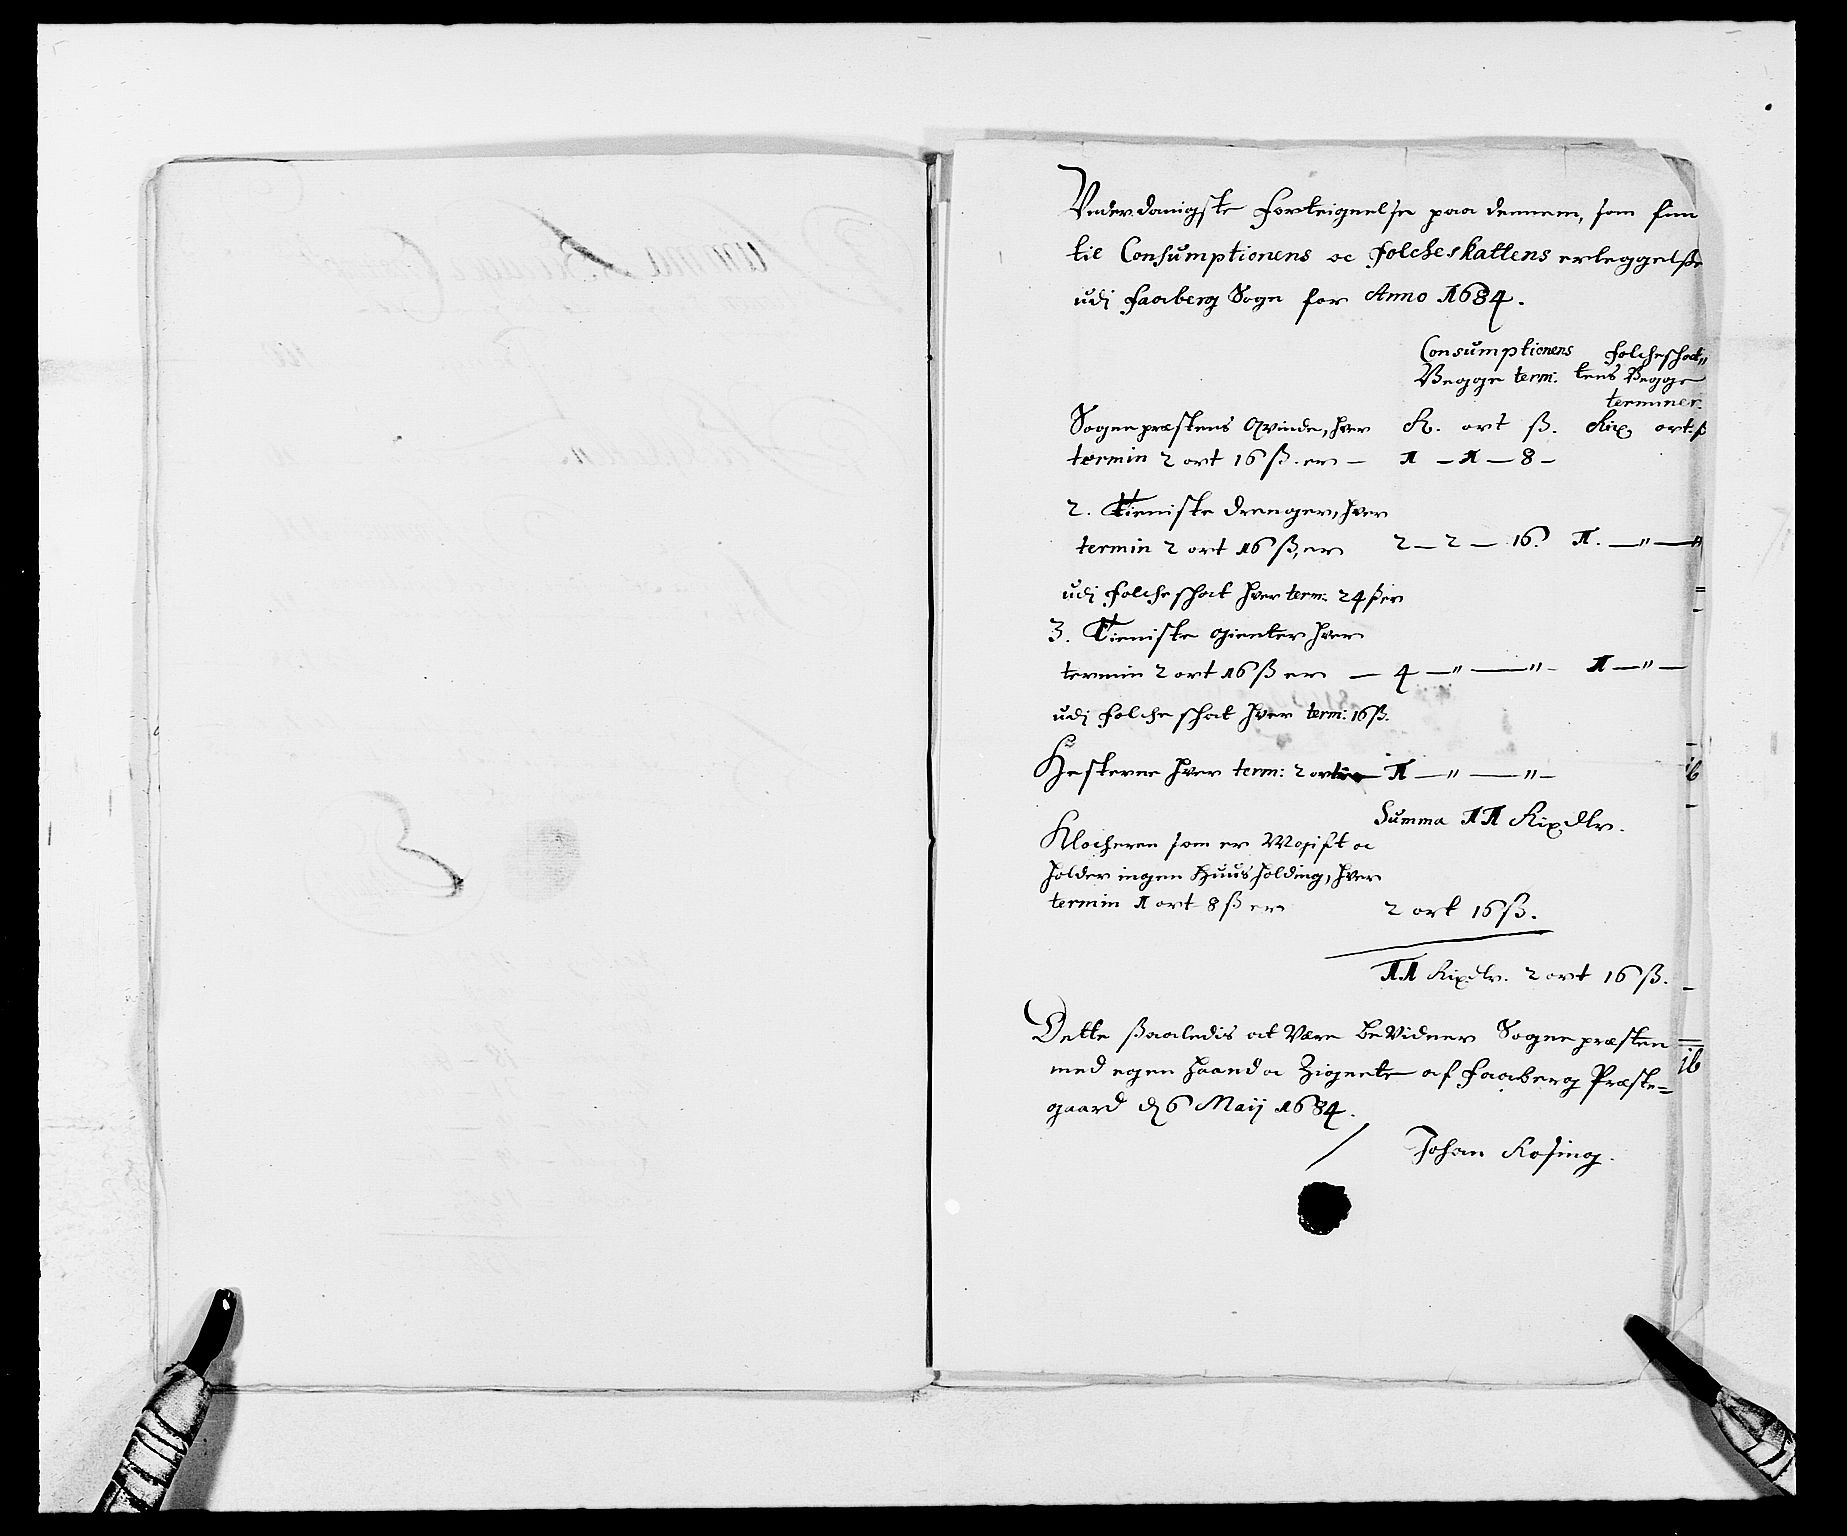 Underdanigste forteignelse paa dennem, som finn
til Consumptionens oc folcheskattens erleggelße
udj faaberg Sogn for Anno 1684.
Consumptionens folcheschat„
Begge term: tens Begge
terminer.
Sognepræstens qvinde, hver R. ort ß. Rix ort. ß
termin 2 ort 16 ß. er — 1 — 1 — 8 —
2. Tieniste drenger, hver
termin 2 ort 16 ß, er 2 — 2 — 16. 1. — " — "
udj folcheschat hver term: 24 ß er
3. Tieniste gienter hver
termin 2 ort 16 ß er — 4 — " — " — 1 — " —
udj folcheschat hver term: 16 ß.
Hesterne hver term: 2 ort 1 — " — " —
Summa 11 Rixdlr.
Klocheren som er
holder ingen Huusholding, hver
termin 1 ort 8 ß er 2 ort 16 ß.
11 Rixdlr. 2 ort 16 ß.
Dette ßaaledis at Være beVidner Sognepræsten
med egen haand oc Zignete af faaberg Præste=
gaard d. 6 Maij 1684.
Johan Rosing.